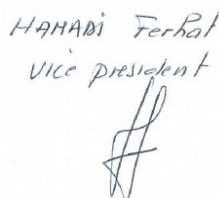 HAMADI Ferhat
Vice president